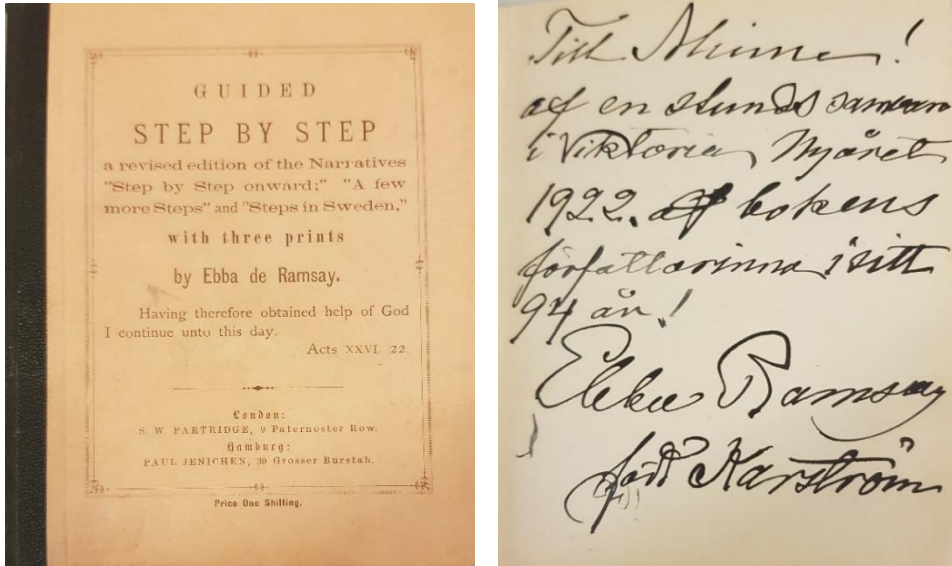 GUIDED
STEP BY STEP
a revised edition of the Narratives
"Step by Step onward;" "A few
more Steps" and "Steps in Sweden,"
with three prints
by Ebba de Ramsay.
Having therefore obtained help of God
I continue unto this day.
Acts XXVI. 22.
London:
S. W. PARTRIDGE, 9 Paternoster Row.
Hamburg:
PAUL JENICHEN, 30 Grosser Burstah.
Price One Shilling.
Till !
af en stunds samvaro
i Viktoria, Nyåret
1922. af bokens
författarinna i sitt
94 år!
Ebba Ramsay
född Karström